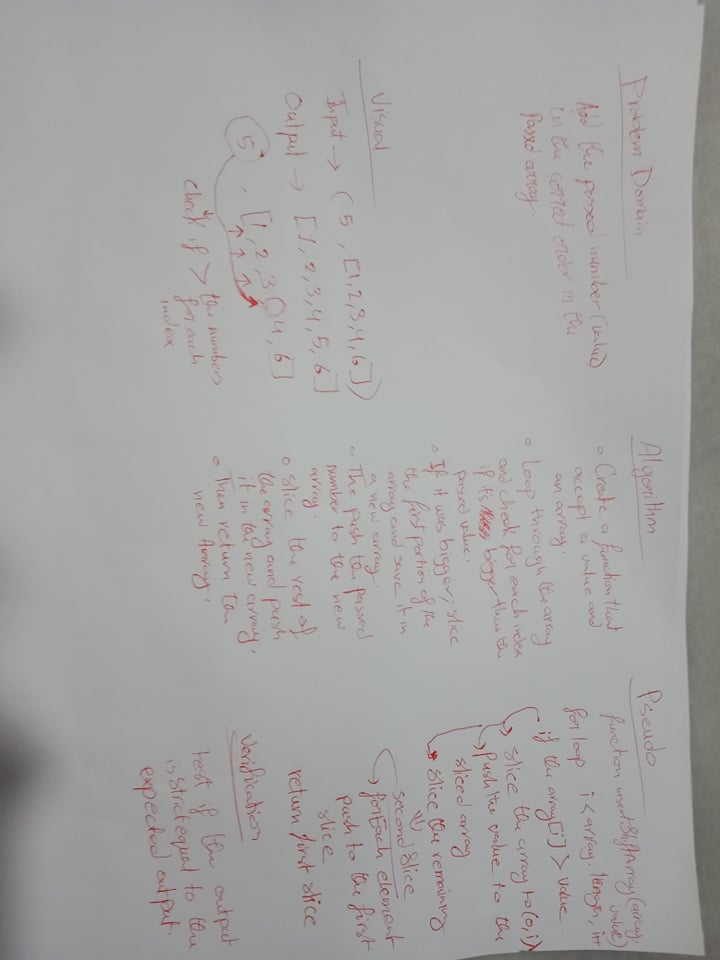 Problem Domain
Add the passed number (value)
in the correct order in the
passed array.
Visual
Input → (5, [1,2,3,4,6])
Output → [1,2,3,4,5,6]
5, [1,2,3 4,6]
check if > the numbers
for each
index
Algorithm
Create a function that
accept a value and
an array.
Loop through the array
and check for each index
if its bigger than the
passed value.
If it was bigger, slice
the first portion of the
array and save it in
a new array.
The push the passed
number to the new
array.
Slice the rest of
the array and push
it in the new array.
Then return the
new Array.
Pseudo
function (array,
value)
for loop i < array.length, i++
if the array[i] > value
slice the array to (0,i)
push the value to the
sliced array
slice the remaining
second slice
forEach element
push to the first
slice
return first slice
Verification
test if the output
is strict equal to the
expected output.